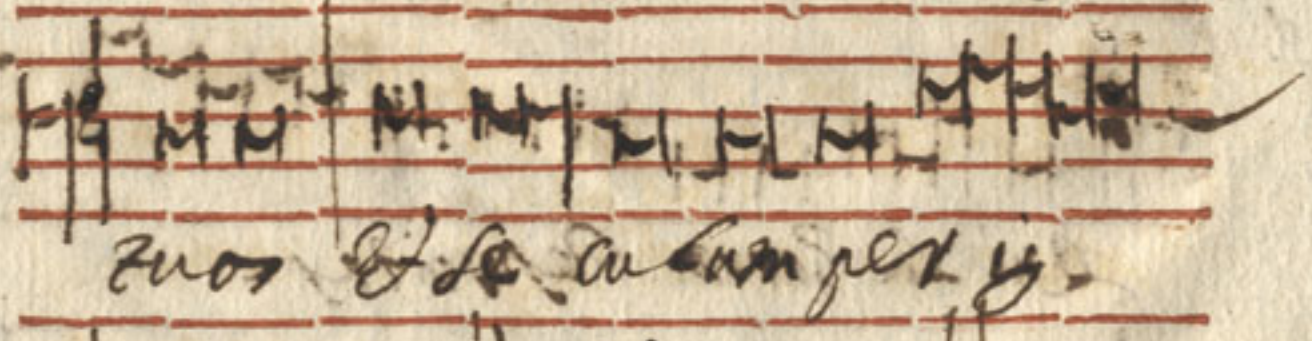 tuos Et se cu lum per